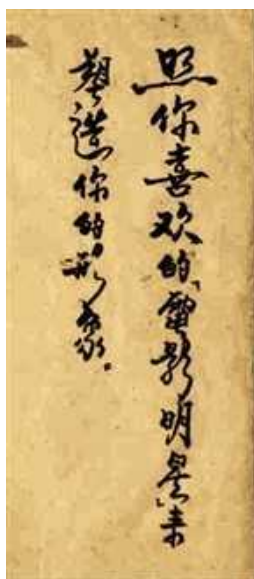 照你喜欢的電影明星来
塑造你的形象。